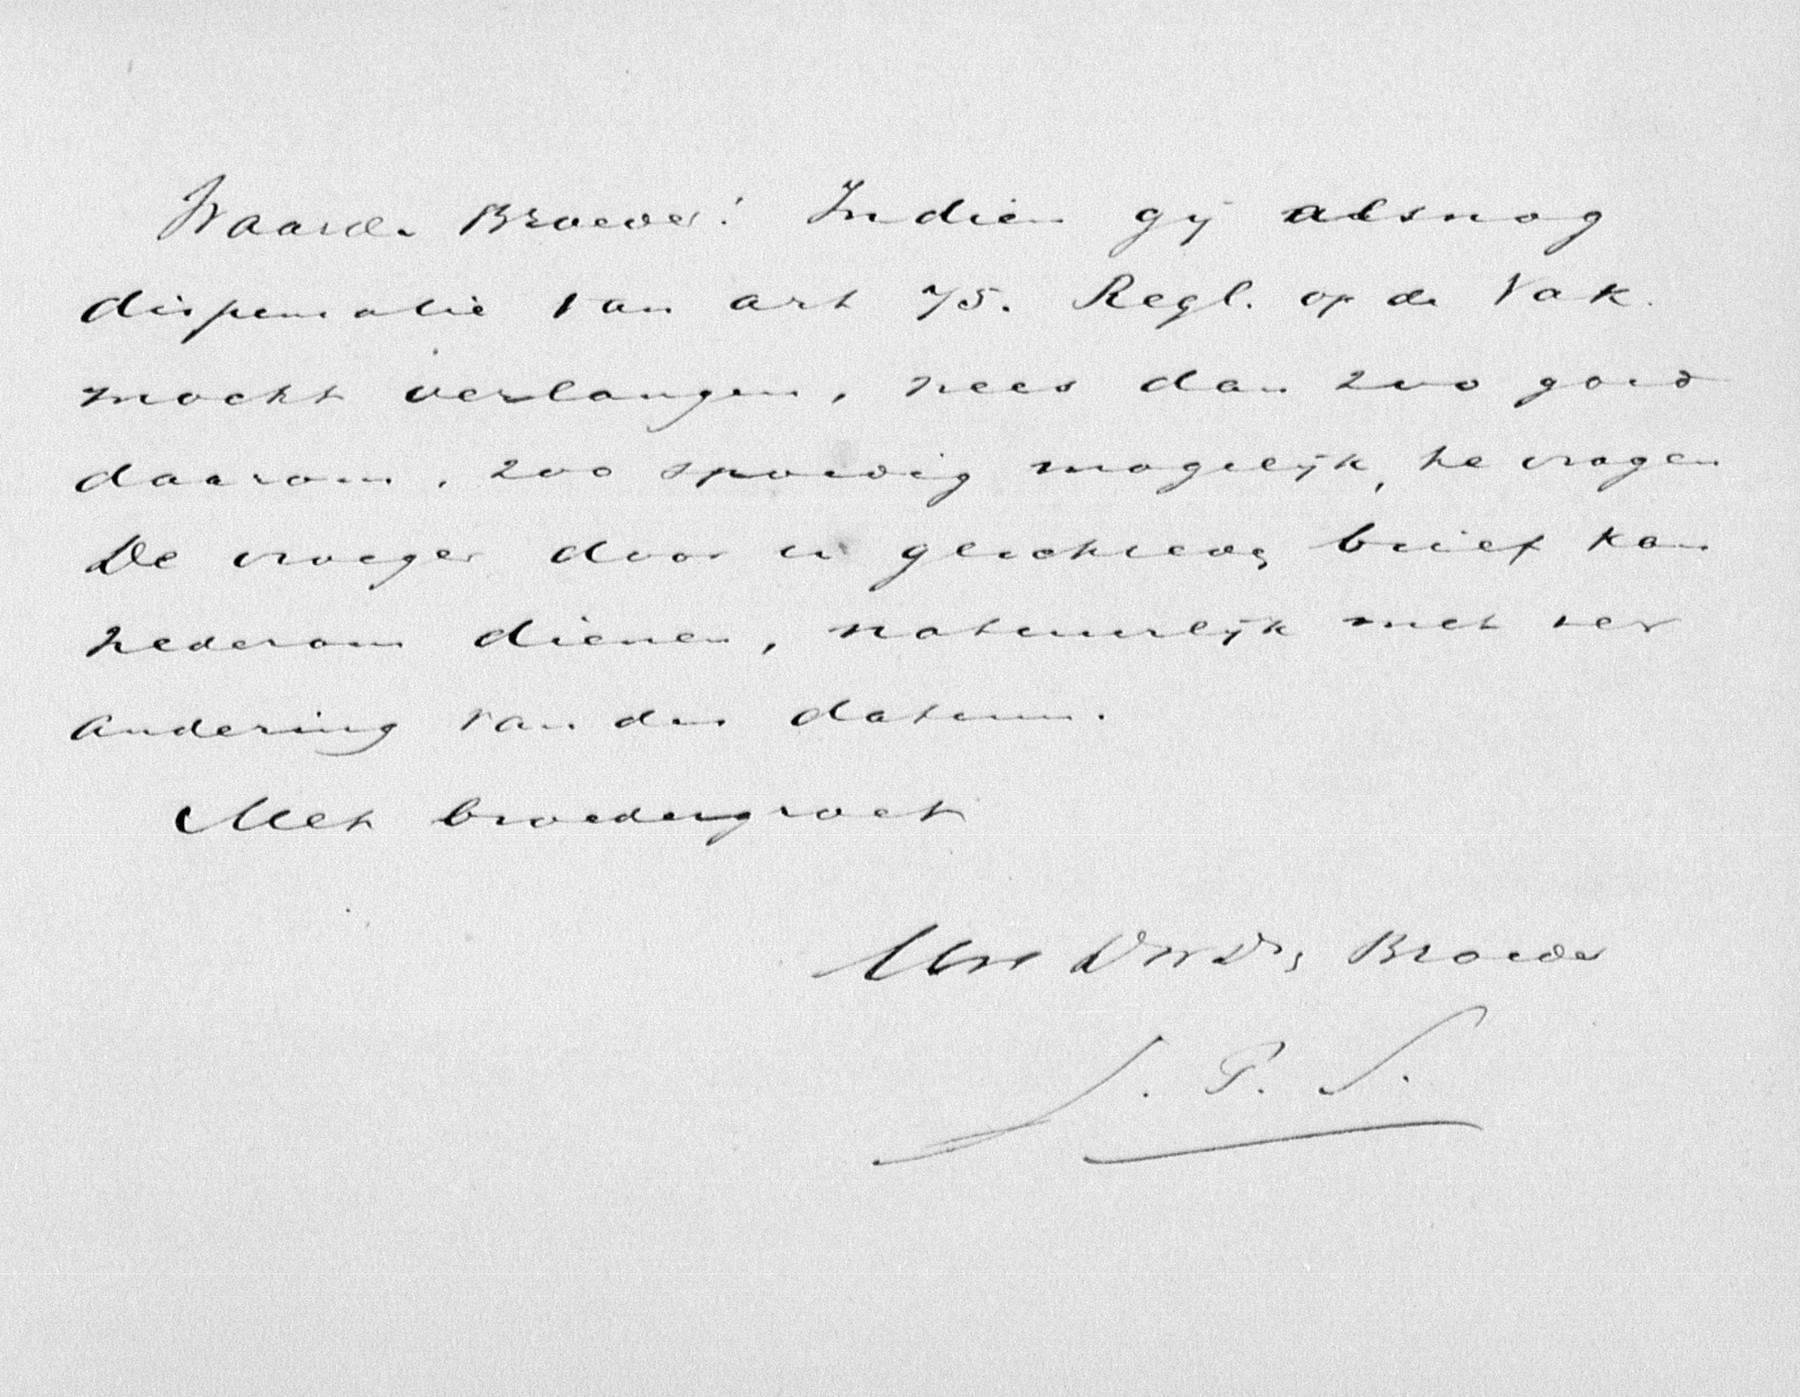 Waarde Broeder! Indien gij alsnog
dispensatie van art 75. Regl. op de Vak.
mocht verlangen, wees dan zoo goed
daarom, zoo spoedig mogelijk, te vragen
De vroeger door u geschreven brief kan
wederom dienen, natuurlijk met ver
andering van den datum.
Met broedergroet
Uw Broeder
J. P. S.